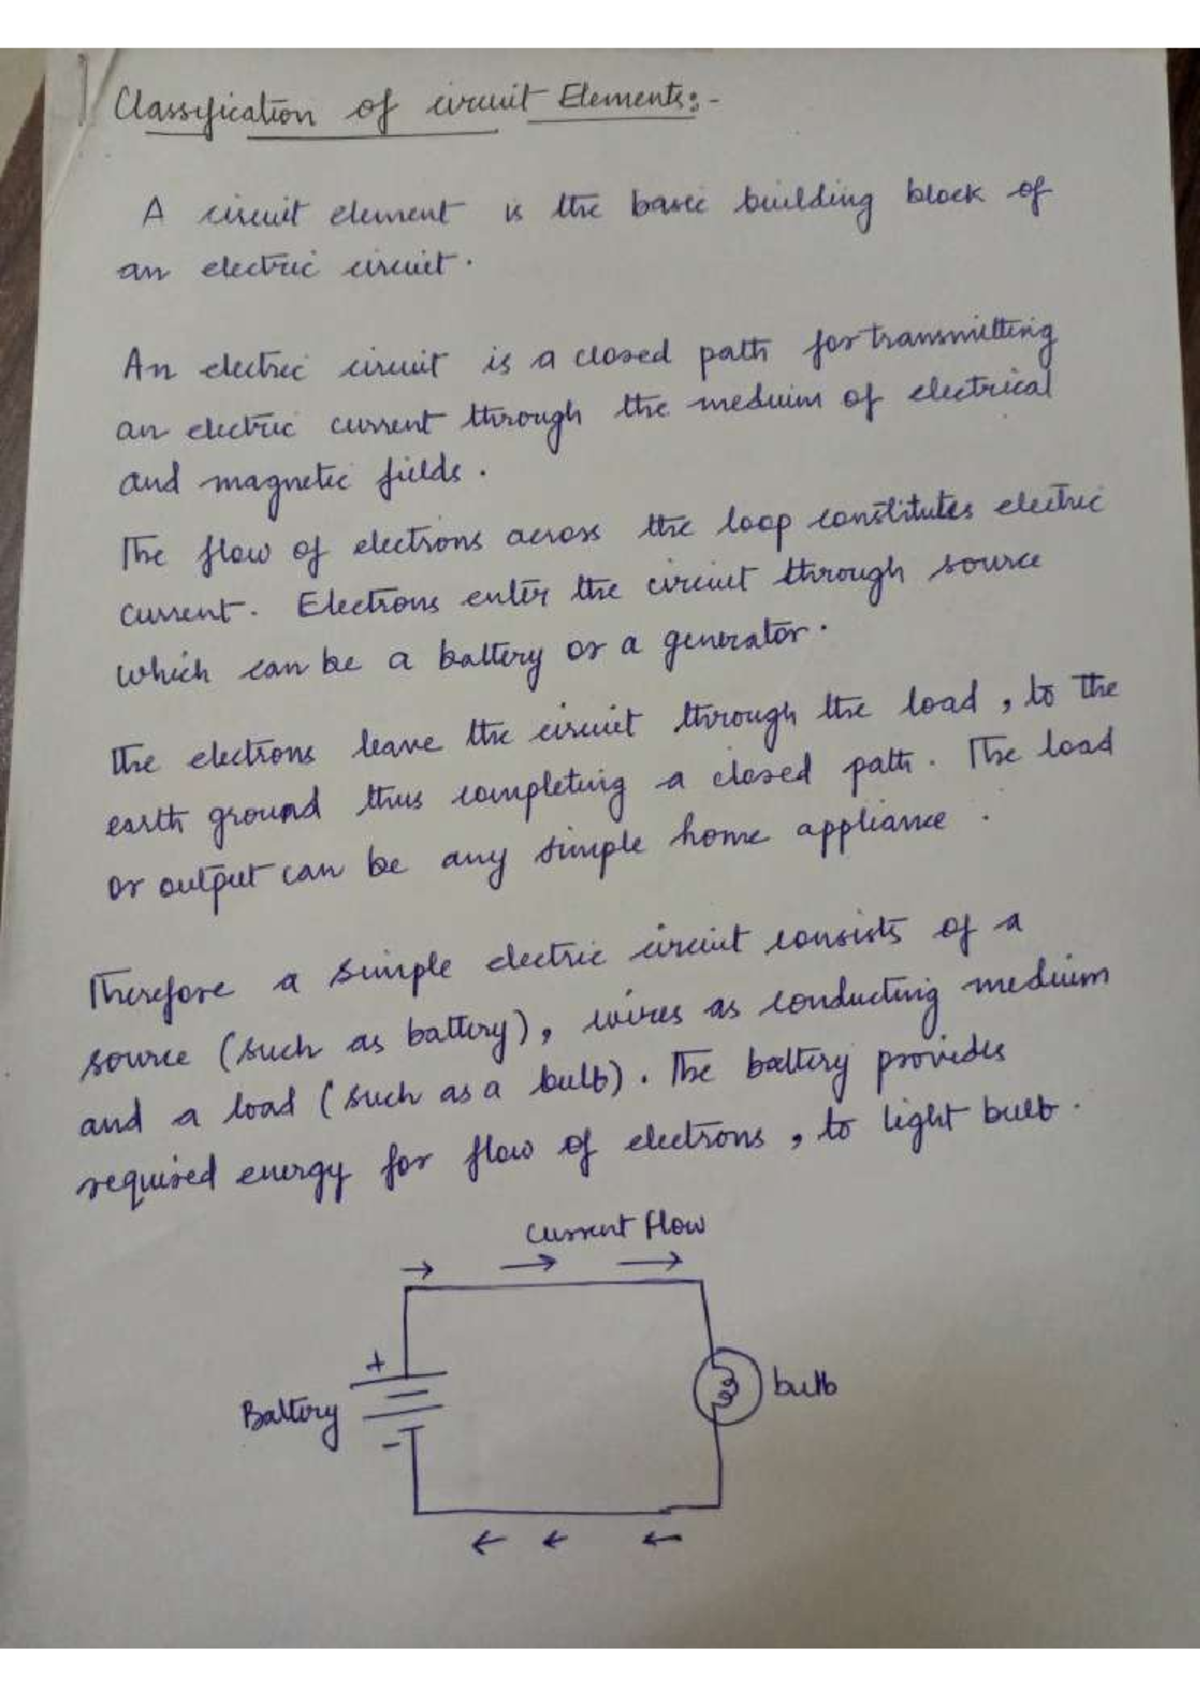 Classification of circuit Elements:-
A circuit element is the basic building block of
an electric circuit.
An electric circuit is a closed path for transmitting
an electric current through the medium of electrical
and magnetic fields.
The flow of electrons across the loop constitutes electric
current. Electrons enter the circuit through source
which can be a battery or a generator.
The electrons leave the circuit through the load, to the
earth ground thus completing a closed path. The load
or output can be any simple home appliance.
Therefore a simple electric circuit consists of a
source (such as battery), wires as conducting medium
and a load (such as a bulb). The battery provides
required energy for flow of electrons, to light bulb.
Current Flow
+
Battery
-
bulb